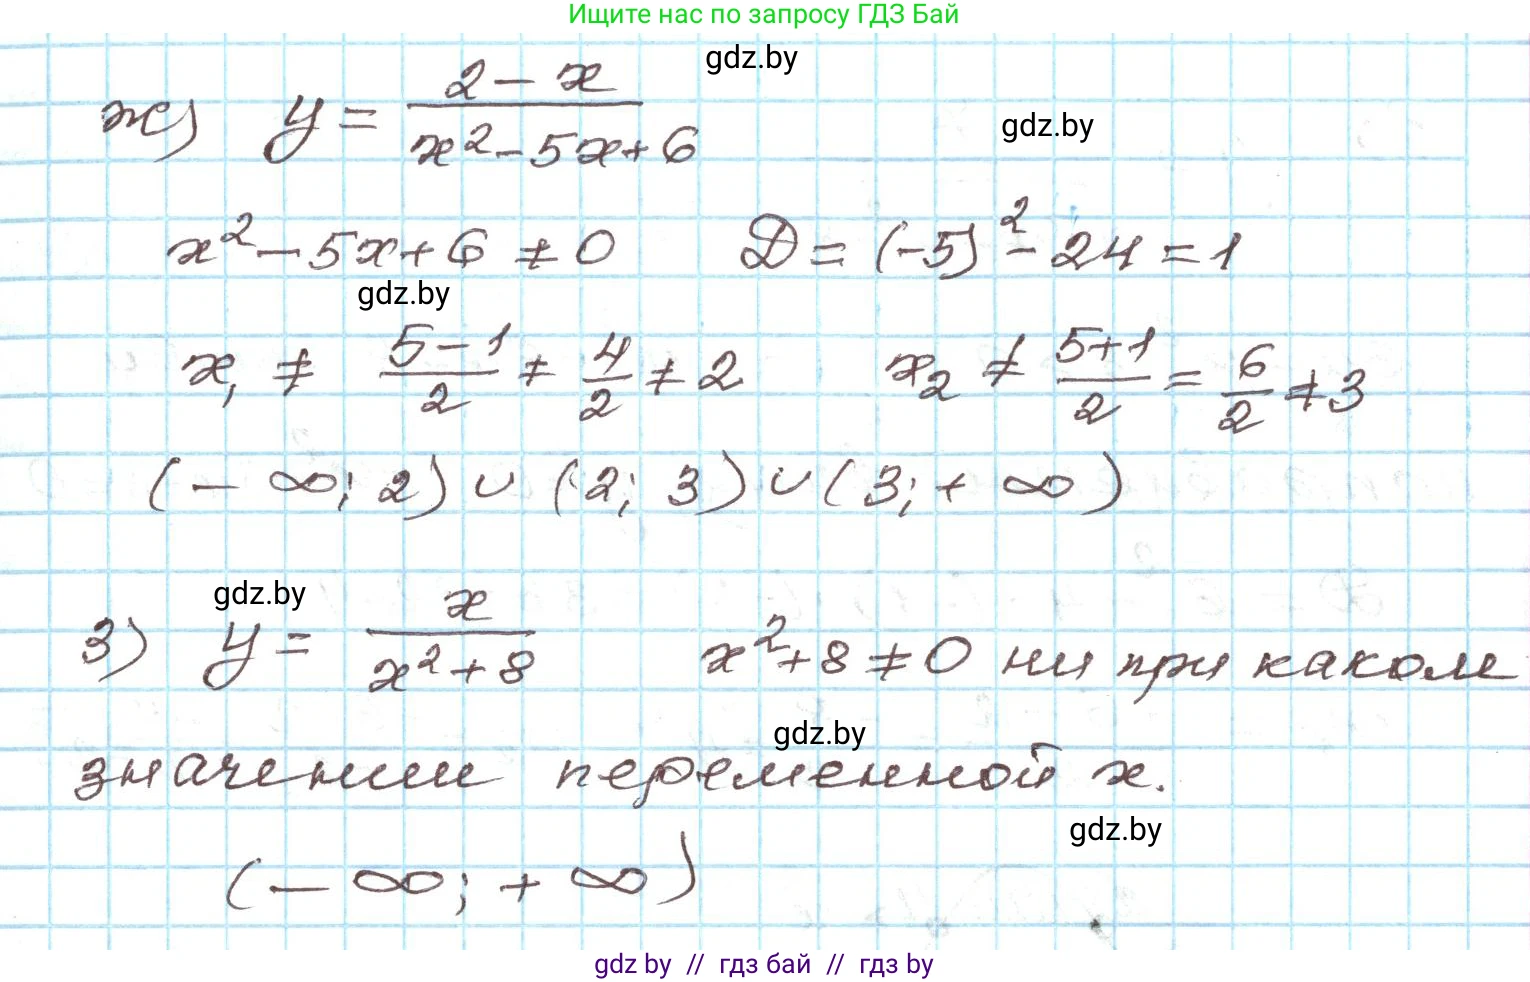 Ищите нас по запросу ГДЗ Бай
gdz.by
ж) y = (2 - x)/(x² - 5x + 6)
gdz.by
x² - 5x + 6 ≠ 0 D = (-5)² - 24 = 1
gdz.by
x₁ ≠ (5 - 1)/2 ≠ 4/2 ≠ 2 x₂ ≠ (5+1)/2 = 6/2 ≠ 3
(- ∞; 2) ∪ (2; 3) ∪ (3; + ∞)
gdz.by
з) y = x/(x² + 8) x² + 8 ≠ 0 ни при каком
gdz.by
значении переменной x.
gdz.by
(- ∞; + ∞)
gdz by // гдз бай // гдз by